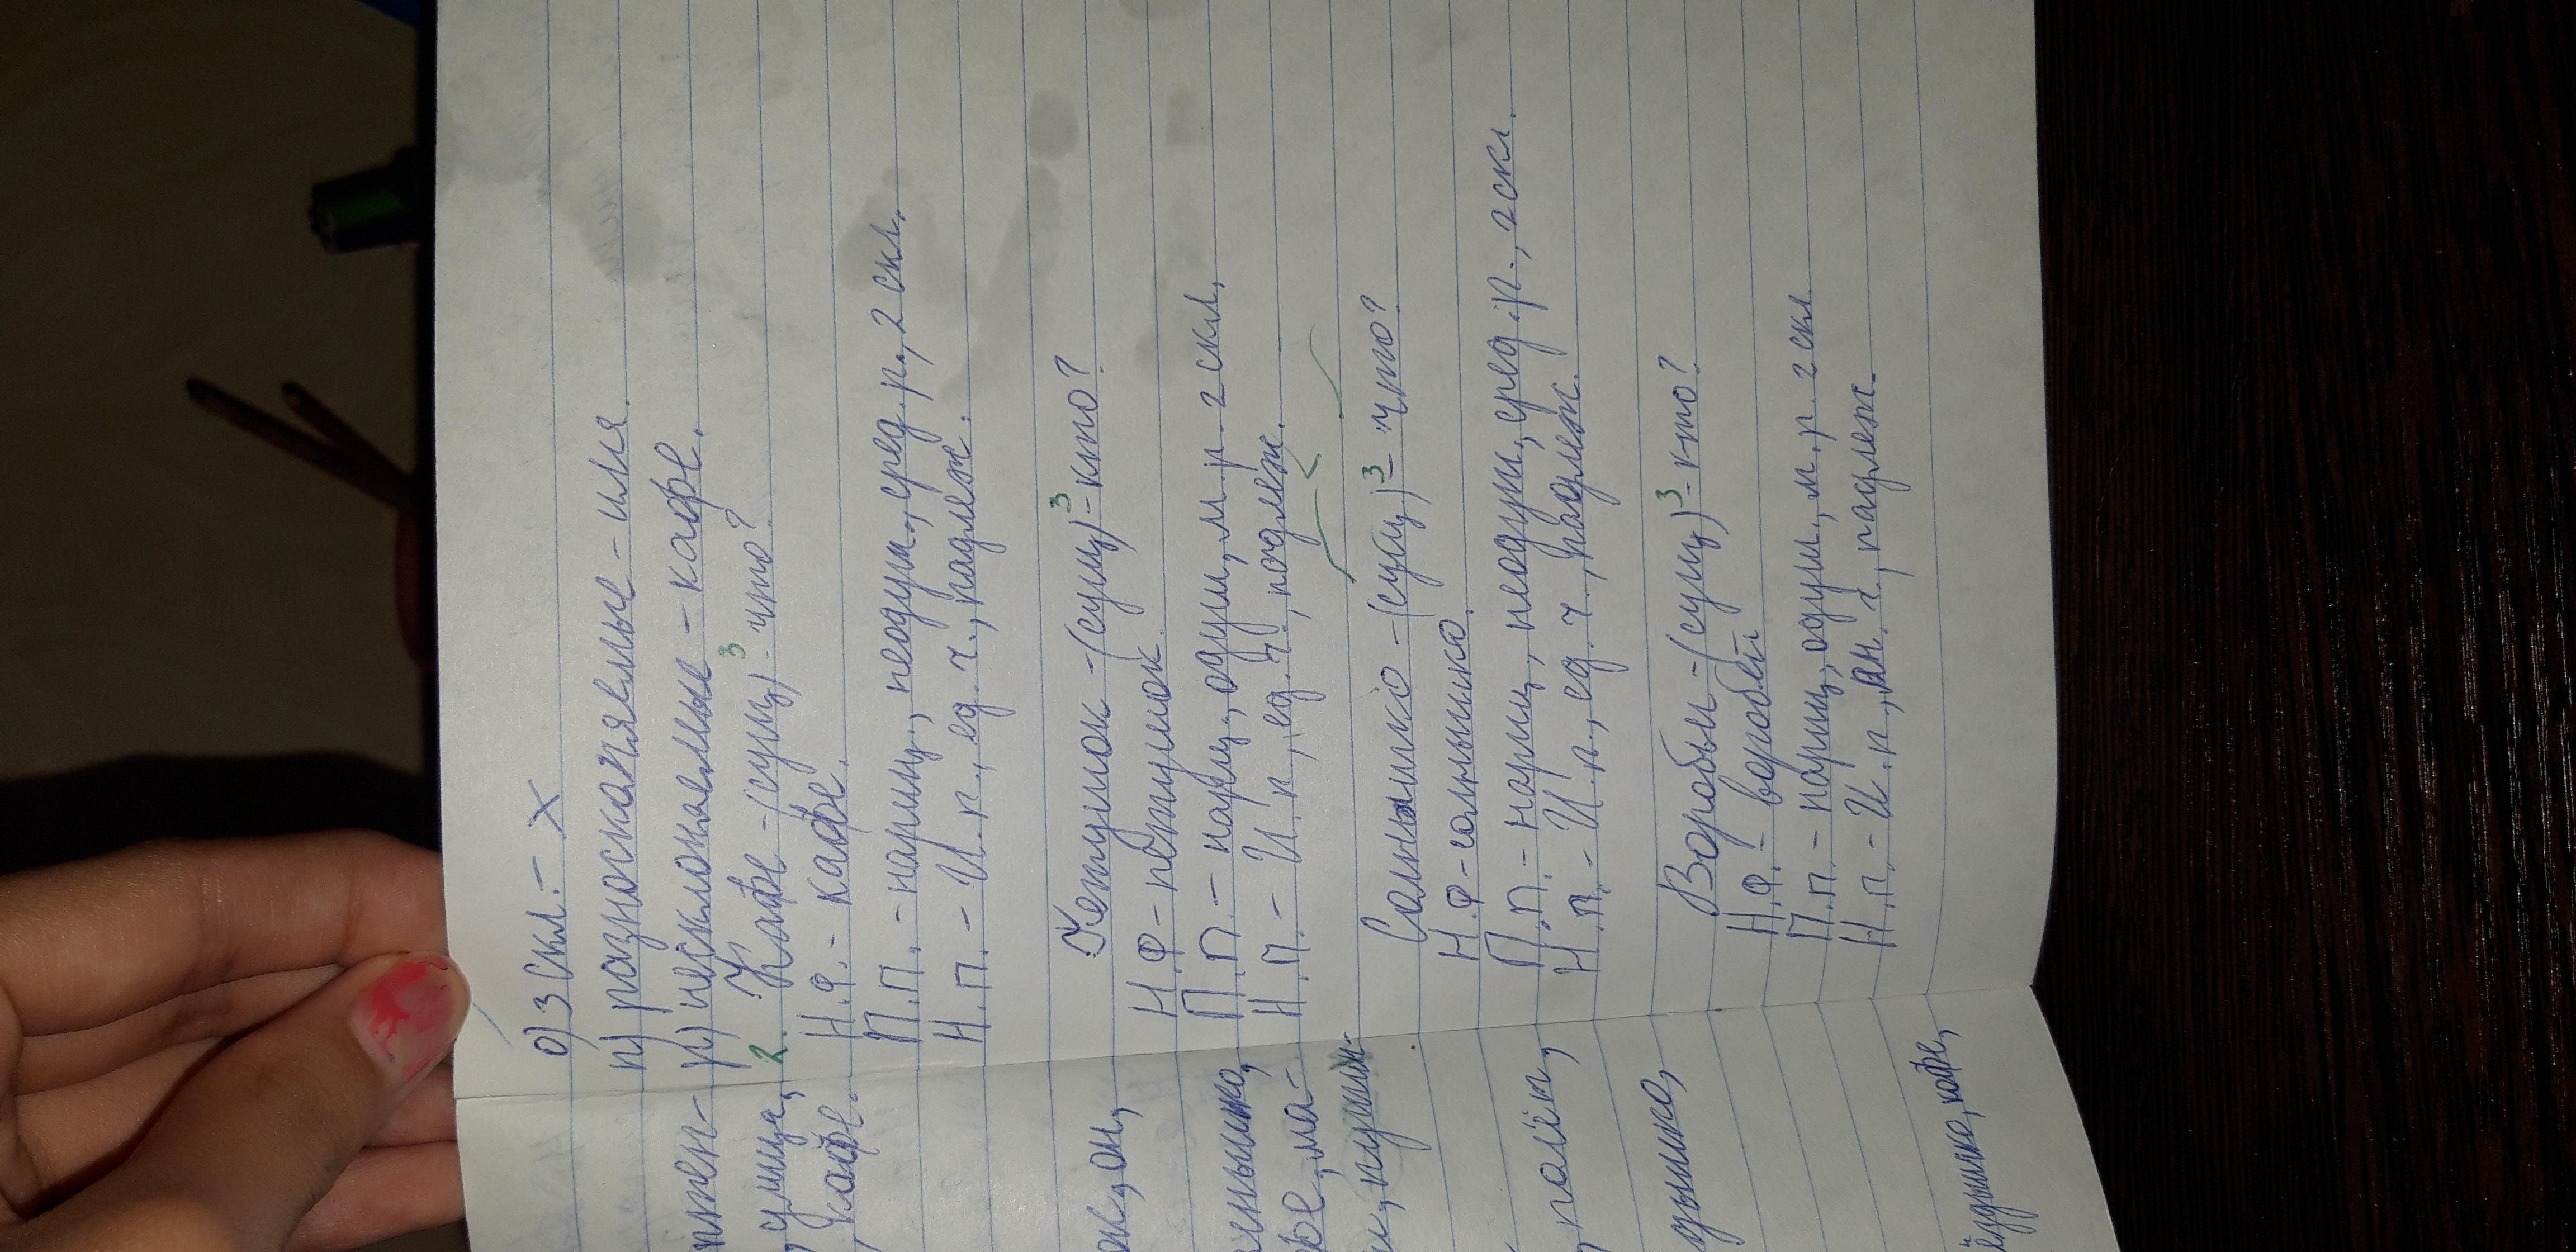 о) 3 скл. - х
п) разносклоняемые - имя.
р) несклоняемые - кафе.
2. Кафе - (сущ)³ - что?
Н.Ф. - кафе.
П.П. - нариц., неодуш., сред. р., 2 скл.
Н.П. - И.п., ед. ч., подлеж.
Петушок - (сущ)³ - кто?
Н.Ф - петушок.
П.П. - нариц., одуш., м.р. 2 скл.,
Н.П. - И.п., ед. ч., подлеж.
Солнышко - (сущ)³ - что?
Н.Ф - солнышко.
П.П. - нариц., неодуш., сред. р., 2 скл.
Н.П. - И.п., ед. ч., подлеж.
Воробьи - (сущ)³ - кто?
Н.Ф. - воробей
П.П. - нариц., одуш., м.р. 2 скл.
Н.П. - И.п., мн. ч., подлеж.
улица,
кафе.
ок, он,
полёт,
кофе,